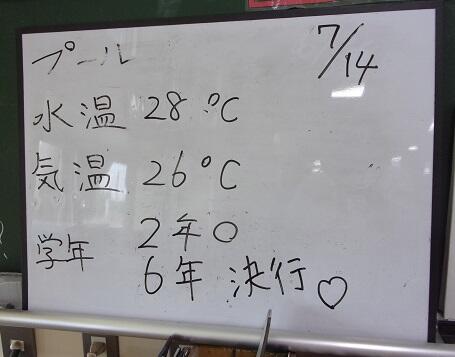 プール 7/14
水温 28℃
気温 26℃
学年 2年○
6年 決行♡